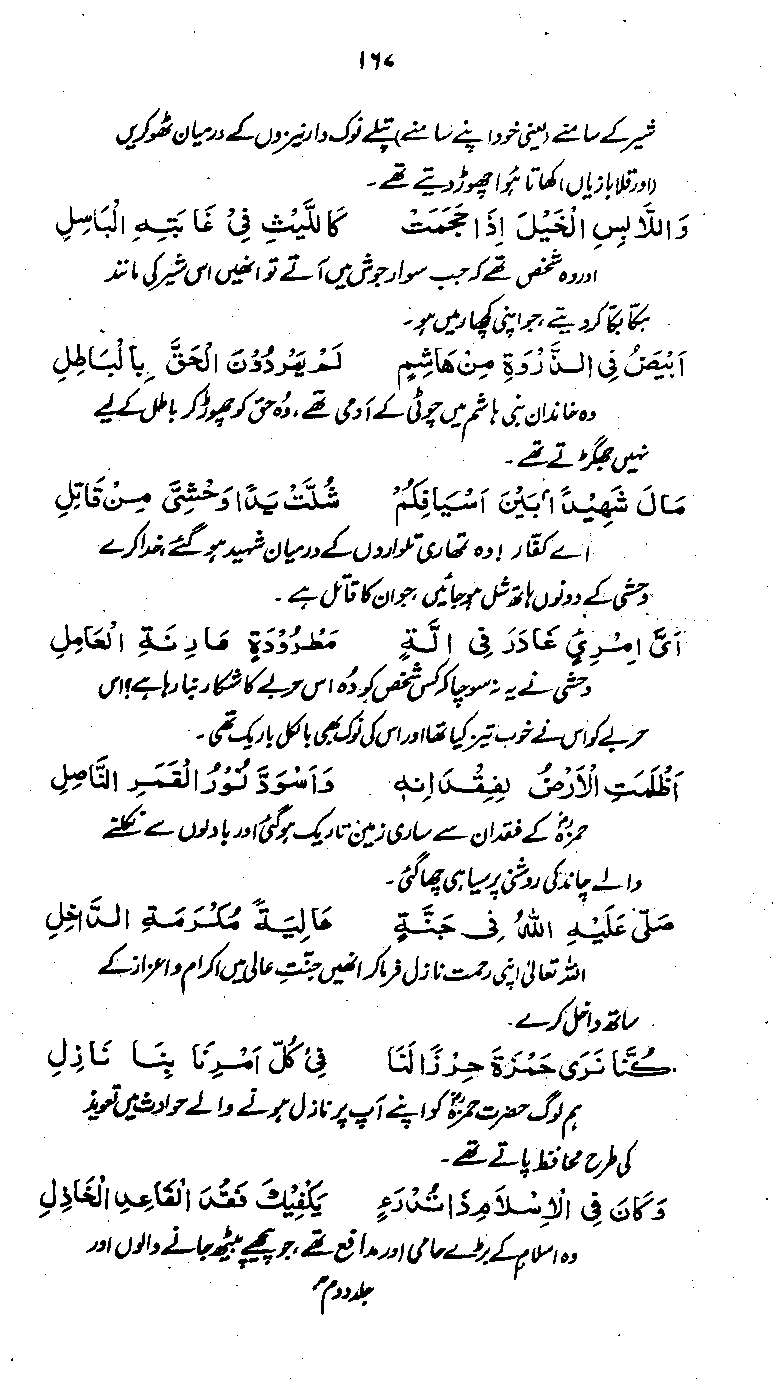 ۱۶۷
شیر کے سامنے (یعنی خود اپنے سامنے) پتلے نوک دار نیزوں کے درمیان ٹھوکریں
(اور قلابازیاں) کھاتا ہُوا چھوڑ دیتے تھے۔
وَاللَّابِسِ الْخَيْلَ إِذَا حَجَمَتْ كَاللَّيْثِ فِيْ غَابَتِهِ الْبَاسِلِ
اور وہ شخص تھے کہ جب سوار جوش میں آتے تو انھیں اس شیر کی مانند
ہکّا بکّا کر دیتے، جو اپنی کچھار میں ہو۔
اَبْيَضُ فِي الذَّرْوَةِ مِنْ هَاشِمٍ لَمْ يَمْرُدُوْنَ الْحَقَّ بِالْبَاطِلِ
وہ خاندان بنی ہاشم میں چوٹی کے آدمی تھے، وُہ حق کو چھوڑ کر باطل کے لیے
نہیں جھگڑتے تھے۔
مَالَ شَهِيْداً بَيْنَ اَسْيَافِكُمْ شُلَّتْ يَدَا وَحْشِيَّ مِنْ قَاتِلِ
اے کفّار! وہ تمھاری تلواروں کے درمیان شہید ہو گئے، خدا کرے
وحشی کے دونوں ہاتھ شل ہو جائیں، جو ان کا قاتل ہے۔
اَيَّ امْرِئٍ غَادَرَ فِي الَّةٍ مَطْرُوْدَةٍ مَارِنَةِ الْعَامِلِ
وحشی نے یہ نہ سوچا کہ کس شخص کو وُہ اس حربے کا شکار بنا رہا ہے؟ اس
حربے کو اس نے خوب تیز کیا تھا اور اس کی نوک بھی بالکل باریک تھی۔
اَظْلَمَتِ الْاَرْضُ لِفِقْدَانِهٖ وَاسْوَدَّ نُوْرُ الْقَمَرِ النَّاصِلِ
حمزہؓ کے فقدان سے ساری زمین تاریک ہو گئی اور بادلوں سے نکلنے
والے چاند کی روشنی پر سیاہی چھا گئی۔
صَلّٰى عَلَيْهِ اللّٰهُ فِي جَنَّةٍ عَالِيَةٍ مُكْرَمَةِ الدَّاخِلِ
اللہ تعالیٰ اپنی رحمت نازل فرما کر انھیں جنّتِ عالی میں اکرام و اعزاز کے
ساتھ داخل کرے۔
كُنَّا نَرٰى حَمْزَةَ حِرْزًا لَنَا فِيْ كُلِّ اَمْرٍ نَا بِنَا نَازِلِ
ہم لوگ حضرت حمزہؓ کو اپنے آپ پر نازل ہونے والے حوادث میں تعویذ
کی طرح محافظ پاتے تھے۔
وَكَانَ فِي الْاِسْلَامِ ذَا تُدْرَءٍ يَكْفِيْكَ فَقْدَ الْقَاعِدِ الْخَاذِلِ
وہ اسلام کے بڑے حامی اور مدافع تھے، جو پیچھے بیٹھ جانے والوں اور
جلد دوم